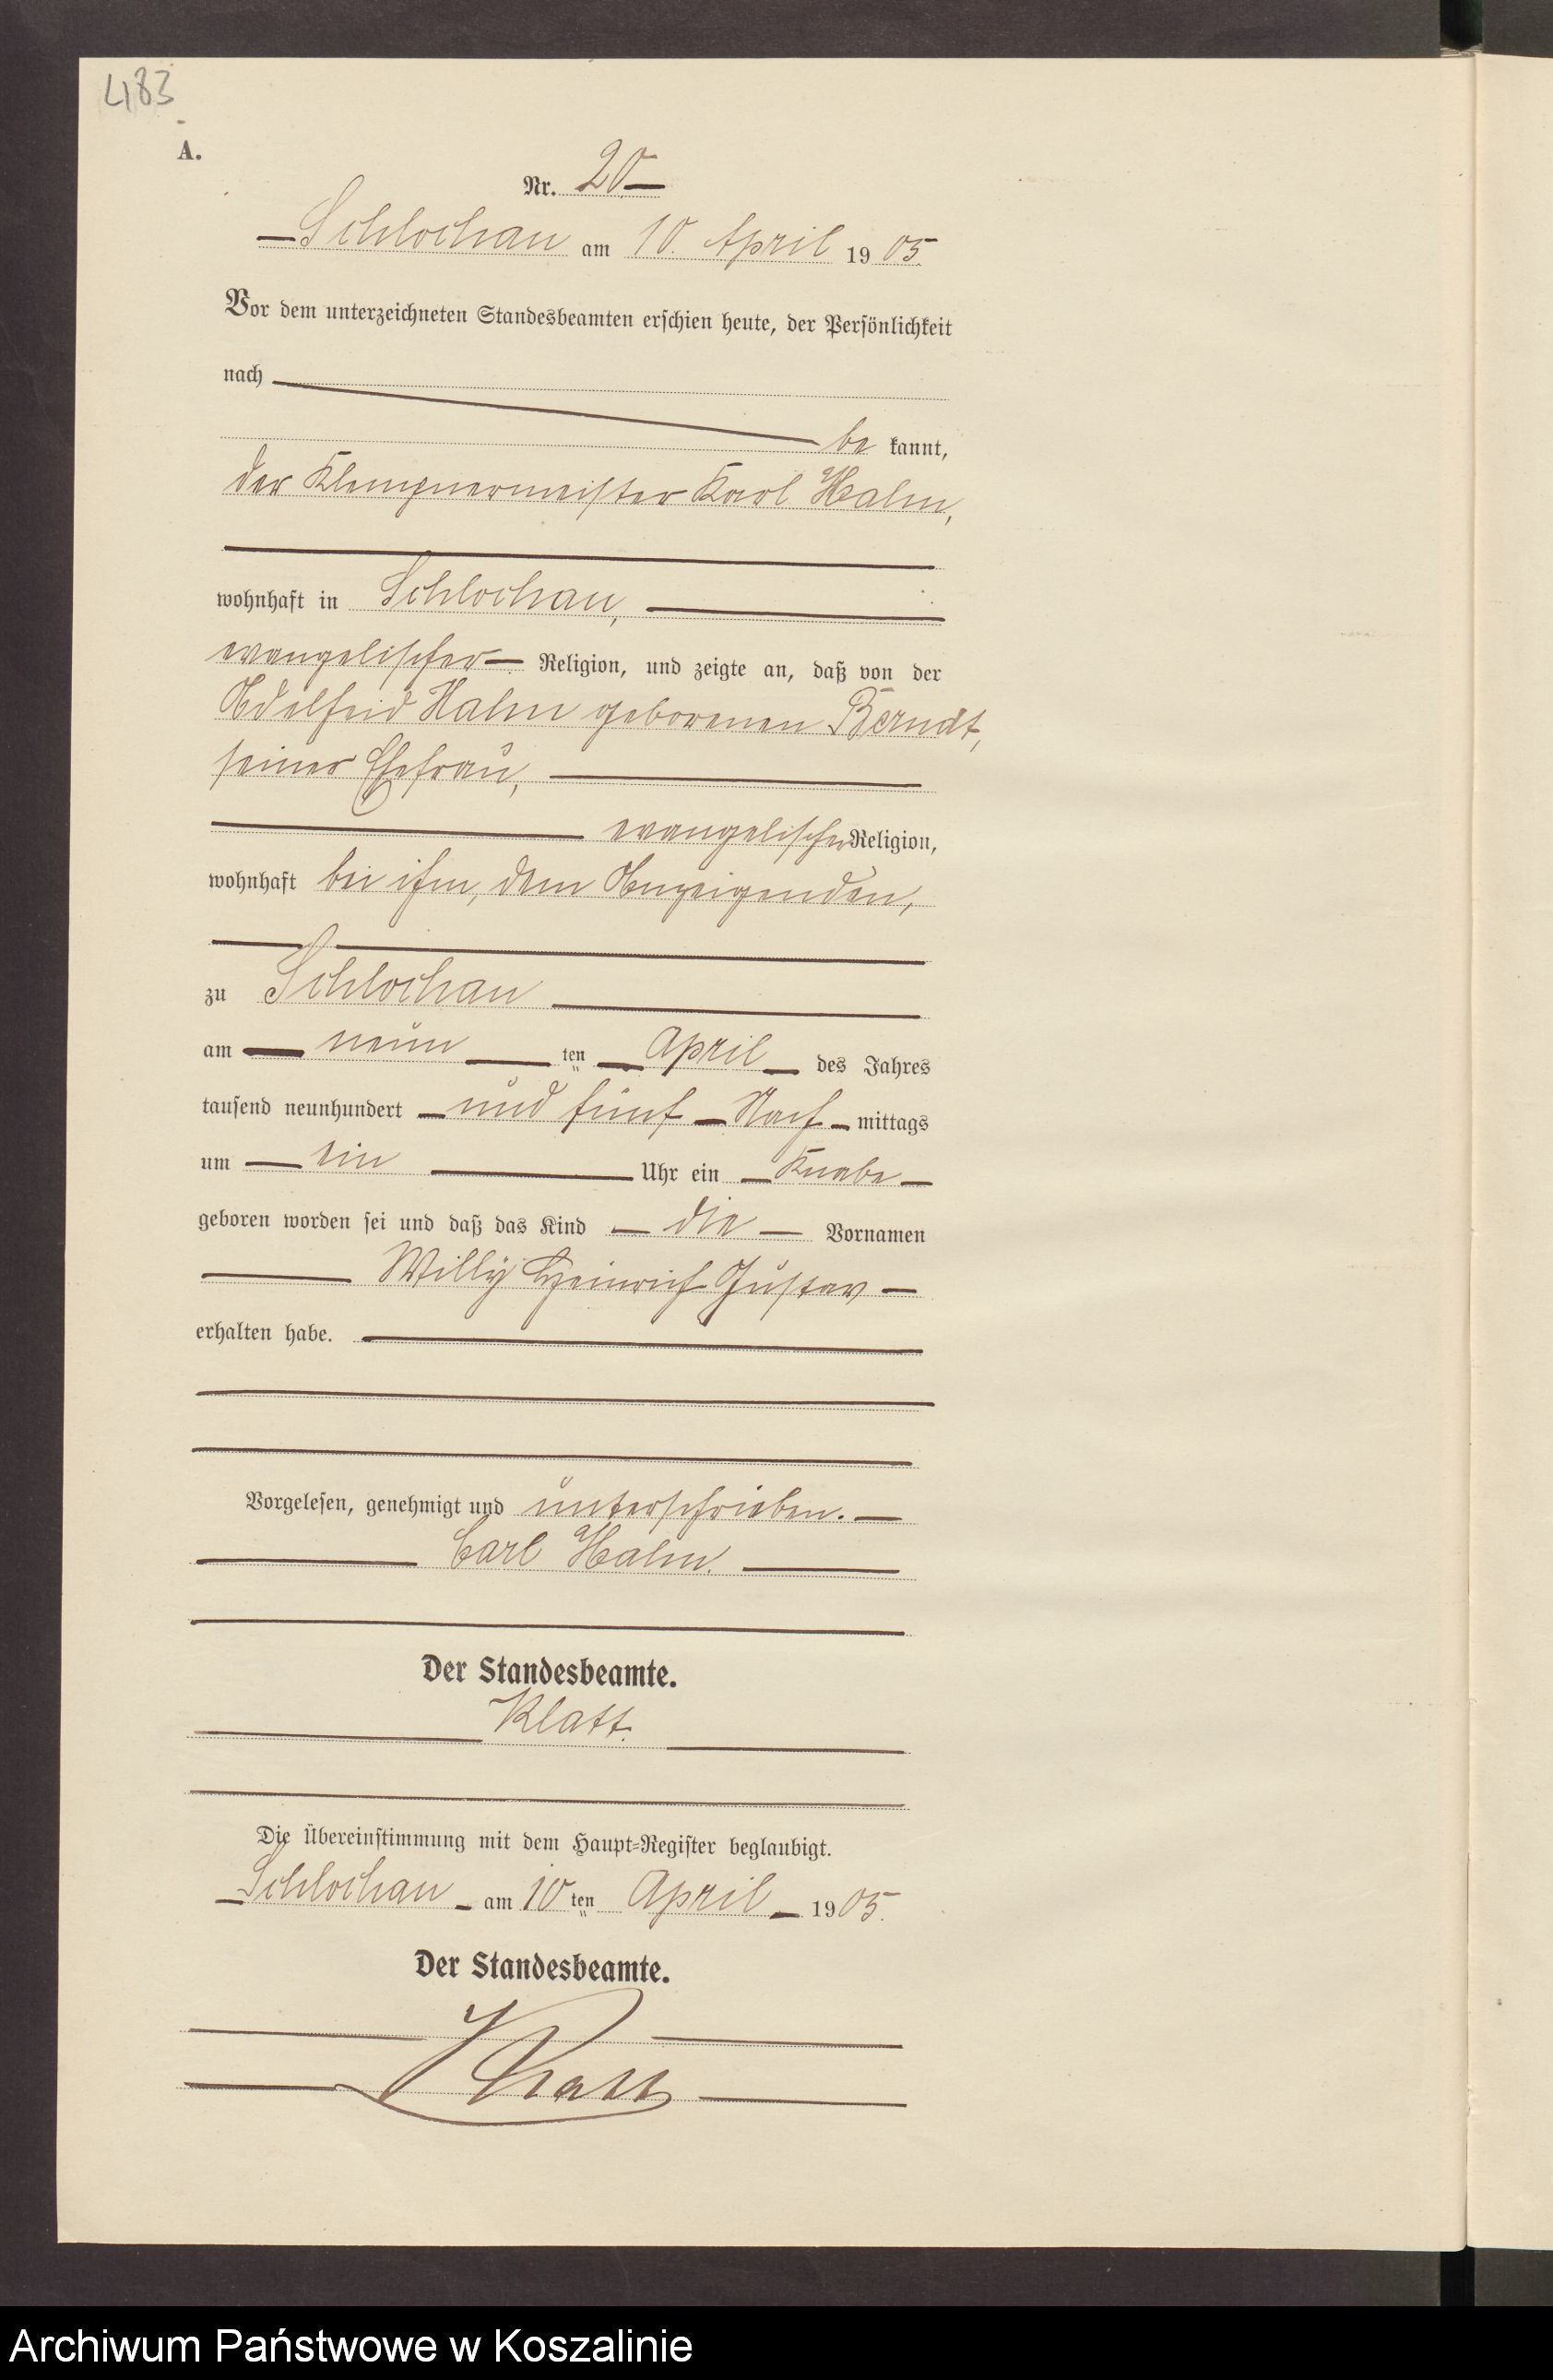 483
A.
Nr. 20
Schlochau am 10. April 1905.
Vor dem unterzeichneten Standesbeamten erschien heute, der Persönlichkeit
nach
be kannt,
der Klempnermeister Karl Halm,
wohnhaft in Schlochau,
evangelischer Religion, und zeigte an, daß von der
Adelheid Halm geborenen Berndt,
seiner Ehefrau,
evangelischer Religion,
wohnhaft bei ihm, dem Anzeigenden,
zu Schlochau
am neun ten April des Jahres
tausend neunhundert und fünf Nach mittags
um ein Uhr ein Knabe
geboren worden sei und daß das Kind die Vornamen
Willy Heinrich Gustav
erhalten habe.
Vorgelesen, genehmigt und unterschrieben.
Carl Halm.
Der Standesbeamte.
Klatt.
Die Übereinstimmung mit dem Haupt-Register beglaubigt.
Schlochau am 10ten April 1905.
Der Standesbeamte.
Klatt
Archiwum Państwowe w Koszalinie